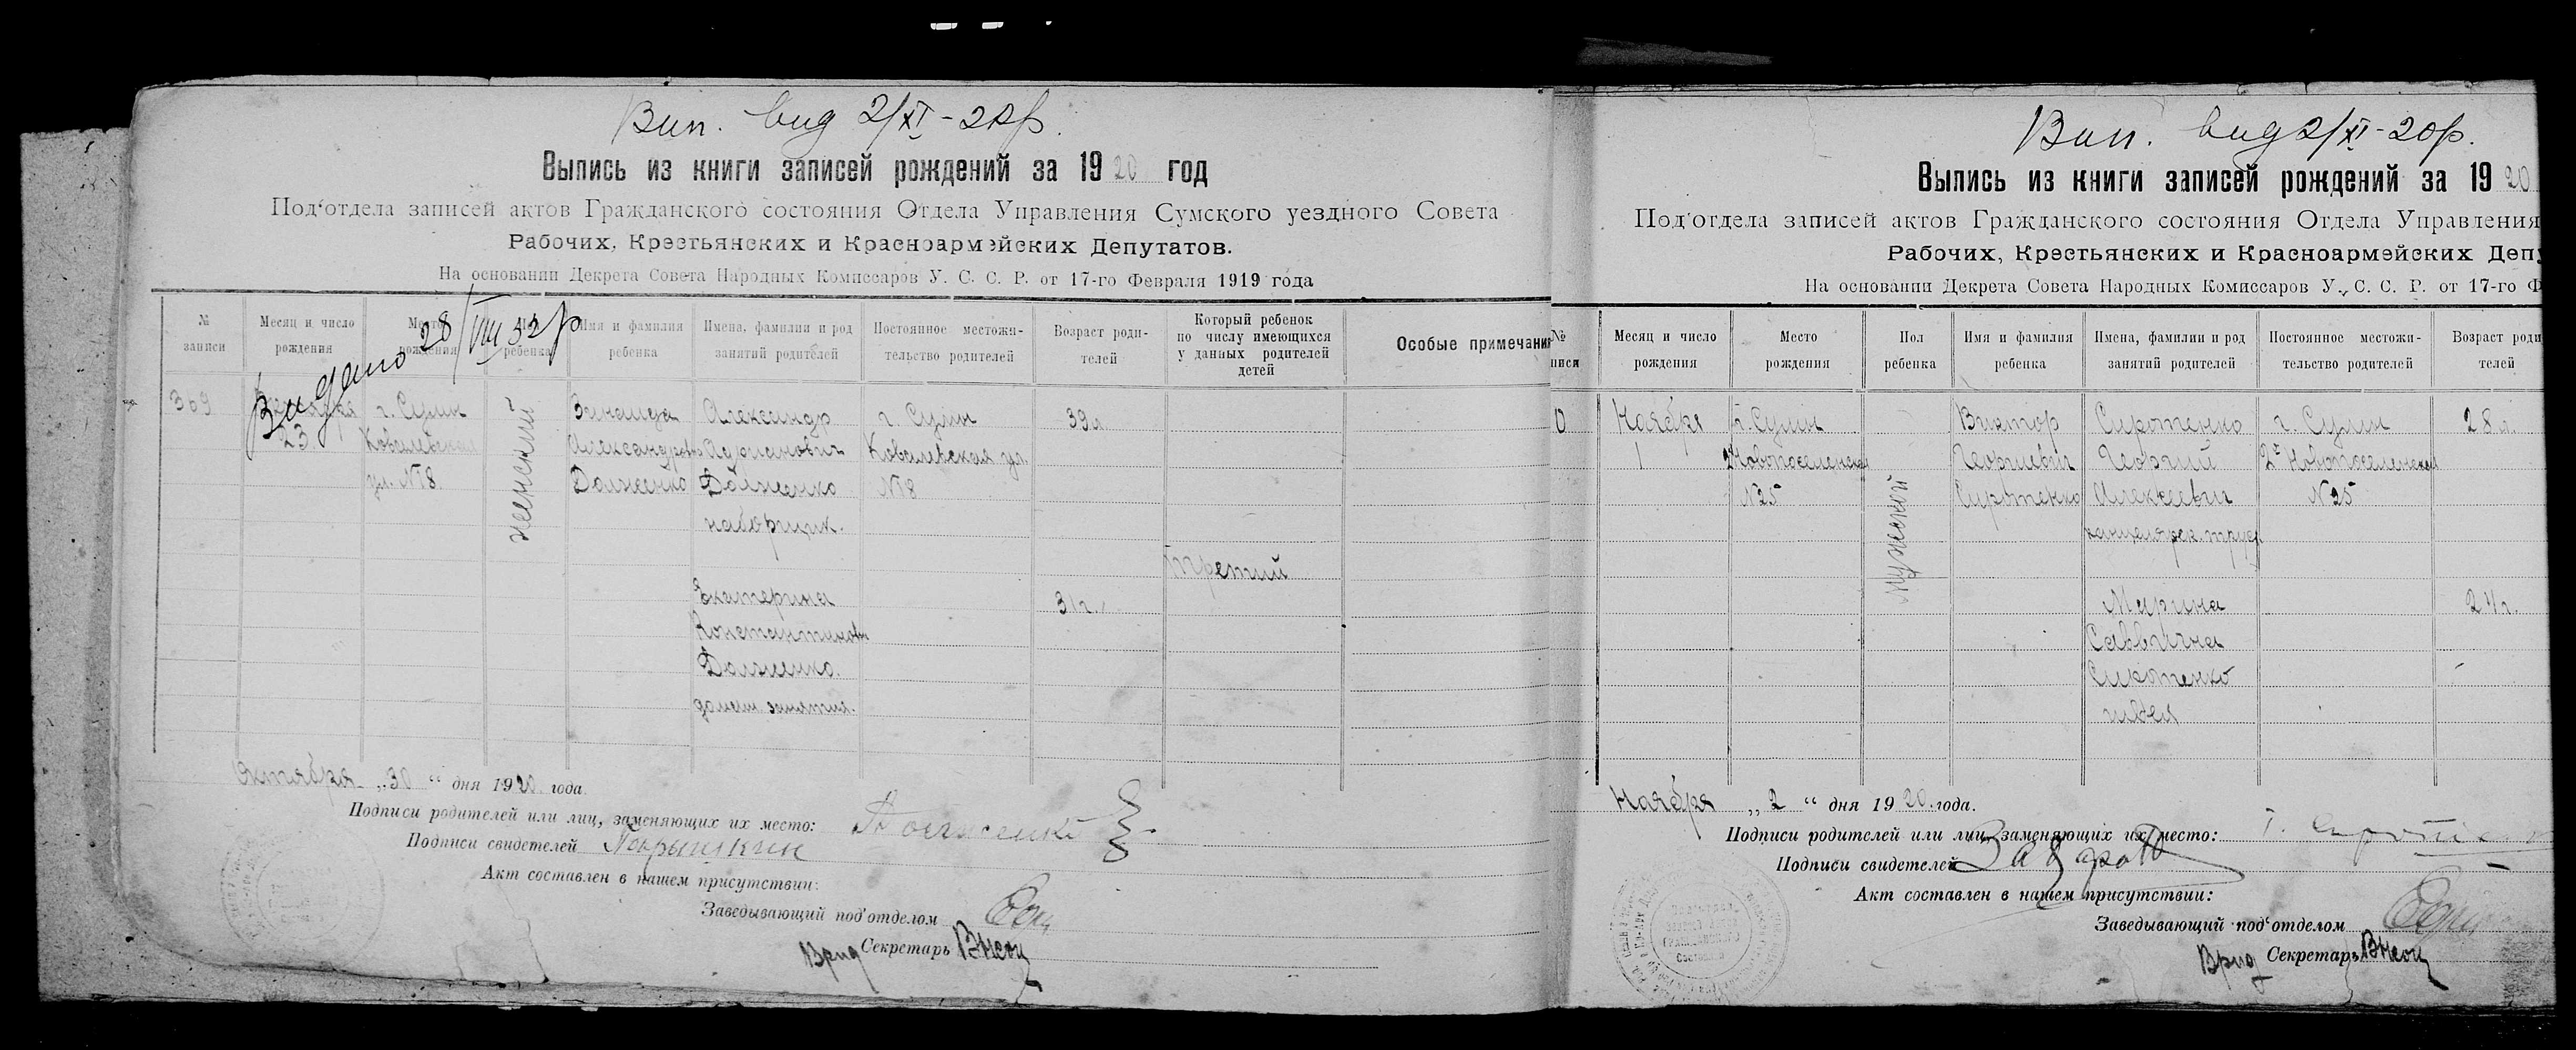 Вип. вид 2/XI-20р.
Выпись из книги записей рождений за 1920 год
Под'отдела записей актов Гражданского состояния Отдела Управления Сумского уездного Совета
Рабочих, Крестьянских и Красноармейских Депутатов.
На основании Декрета Совета Народных Комиссаров У. С. С. Р. от 17-го Февраля 1919 года
Видано 28/VIII 32р
№ записи
Месяц и число рождения
Место рождения
ребенка
Имя и фамилия ребенка
Имена, фамилии и род занятий родителей
Постоянное местожительство родителей
Возраст родителей
Который ребенок по числу имеющихся у данных родителей детей
Особые примечани
369
23
г. Сумы
Ковалевская
ул. №8.
женский
Зинаида
Александровна
Долженко
Александр
Адрианович
Долженко
наборщик.
г. Сумы
Ковалевская ул.
№8
39л.
Третий
Екатерина
Константиновн
Долженко.
домаш. занятия.
31г.
Октября „30“ дня 1920 года.
Подписи родителей или лиц, заменяющих их место: Долженко
Подписи свидетелей
Акт составлен в нашем присутствии:
Заведывающий под'отделом
Врид Секретарь
Вип. вид 2/XI-20р.
Выпись из книги записей рождений за 1920
Под'отдела записей актов Гражданского состояния Отдела Управления
Рабочих, Крестьянских и Красноармейских Деп
На основании Декрета Совета Народных Комиссаров У. С. С. Р. от 17-го Ф
№ писи
Месяц и число рождения
Место рождения
Пол ребенка
Имя и фамилия ребенка
Имена, фамилии и род занятий родителей
Постоянное местожительство родителей
Возраст роди телей
0
Ноября
1
г. Сумы
2 Новопоселенская
№25
мужской
Виктор
Георгиевич
Сиротенко
Сиротенко
Георгий
Алексеевич
канцелярск. труд
г. Сумы
2я Новопоселенская
№25
28л.
Марина
Саввична
Сиротенко
швея
24г.
Ноября „2“ дня 1920 года.
Подписи родителей или лиц, заменяющих их место: Г. Сироте
Подписи свидетелей
Акт составлен в нашем присутствии:
Заведывающий под'отделом
Врид Секретарь